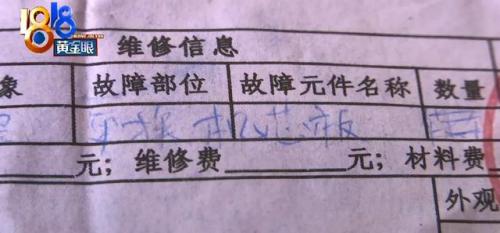 1818
黄金眼
维修信息
象 故障部位 故障元件名称 数量
机芯板
元；维修费 元；材料费
外观